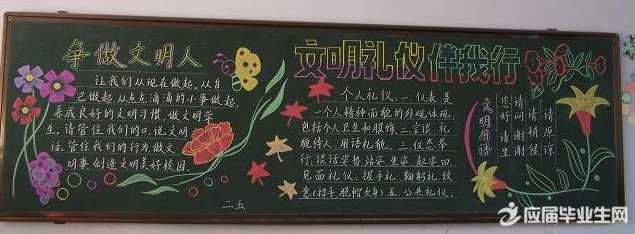 争做文明人
让我们从现在做起,从自
己做起,从点点滴滴的小事做起,
养成良好的文明习惯,做文明学
生,请管住我们的口,说文明
话,管住我们的行为,做文
明事,创造文明美好校园。
二五
文明礼仪伴我行
个人礼仪:一、仪表是
一个人精神面貌的外观体现,
包括个人卫生和服饰。二、言谈:礼
貌待人,用语礼貌。三、仪态举
行:谈话姿势,站姿,坐姿,起姿。四、
见面礼仪:握手礼、鞠躬礼、
致意(招手 脱帽 欠身)五、公共礼仪。
文明用语
请原谅
请稍候
请问 谢谢
您好 请坐
应届毕业生网